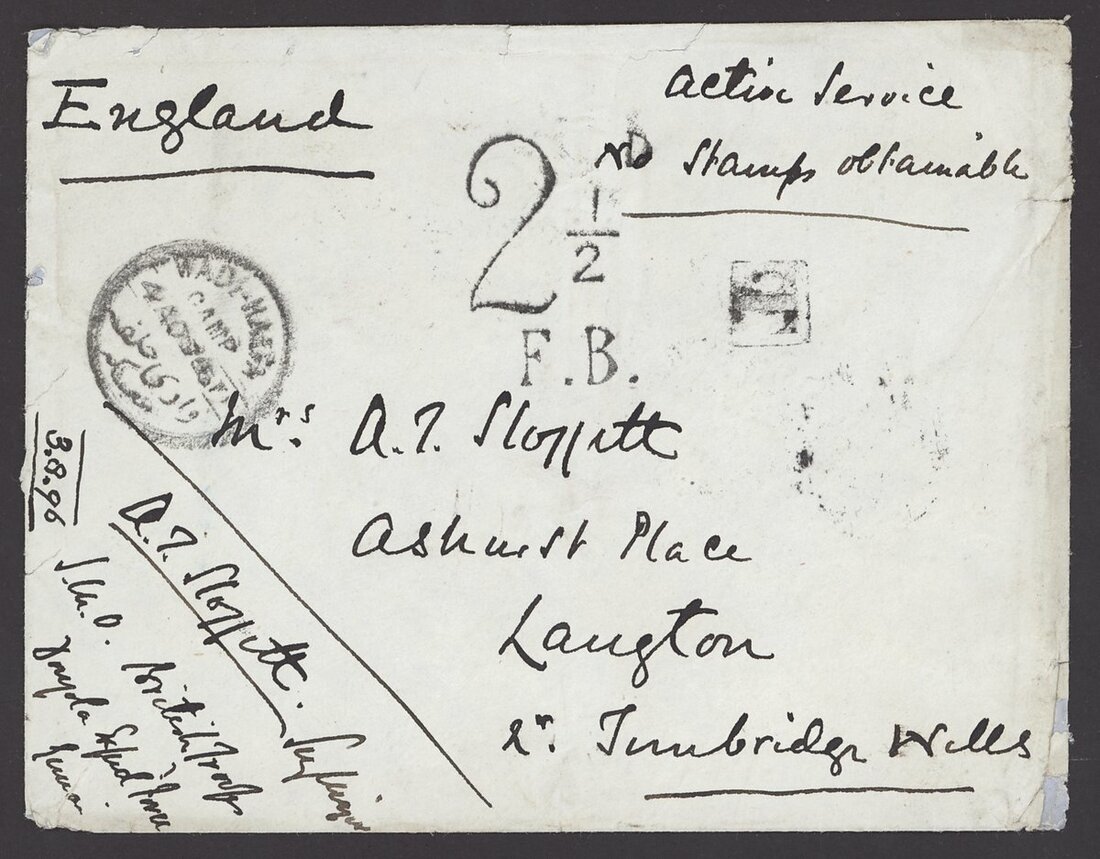 England
Active Service
No Stamps obtainable
2 1/2 D
F.B.
T
WADI-HALFA
CAMP
وادي حلفا
معسكر
Mrs. A.T. Sloggett
Ashurst Place
Langton
Nr. Tunbridge Wells
3.8.96
A.T. Sloggett.
S.M.O. British Troops
Dongola Exped Force